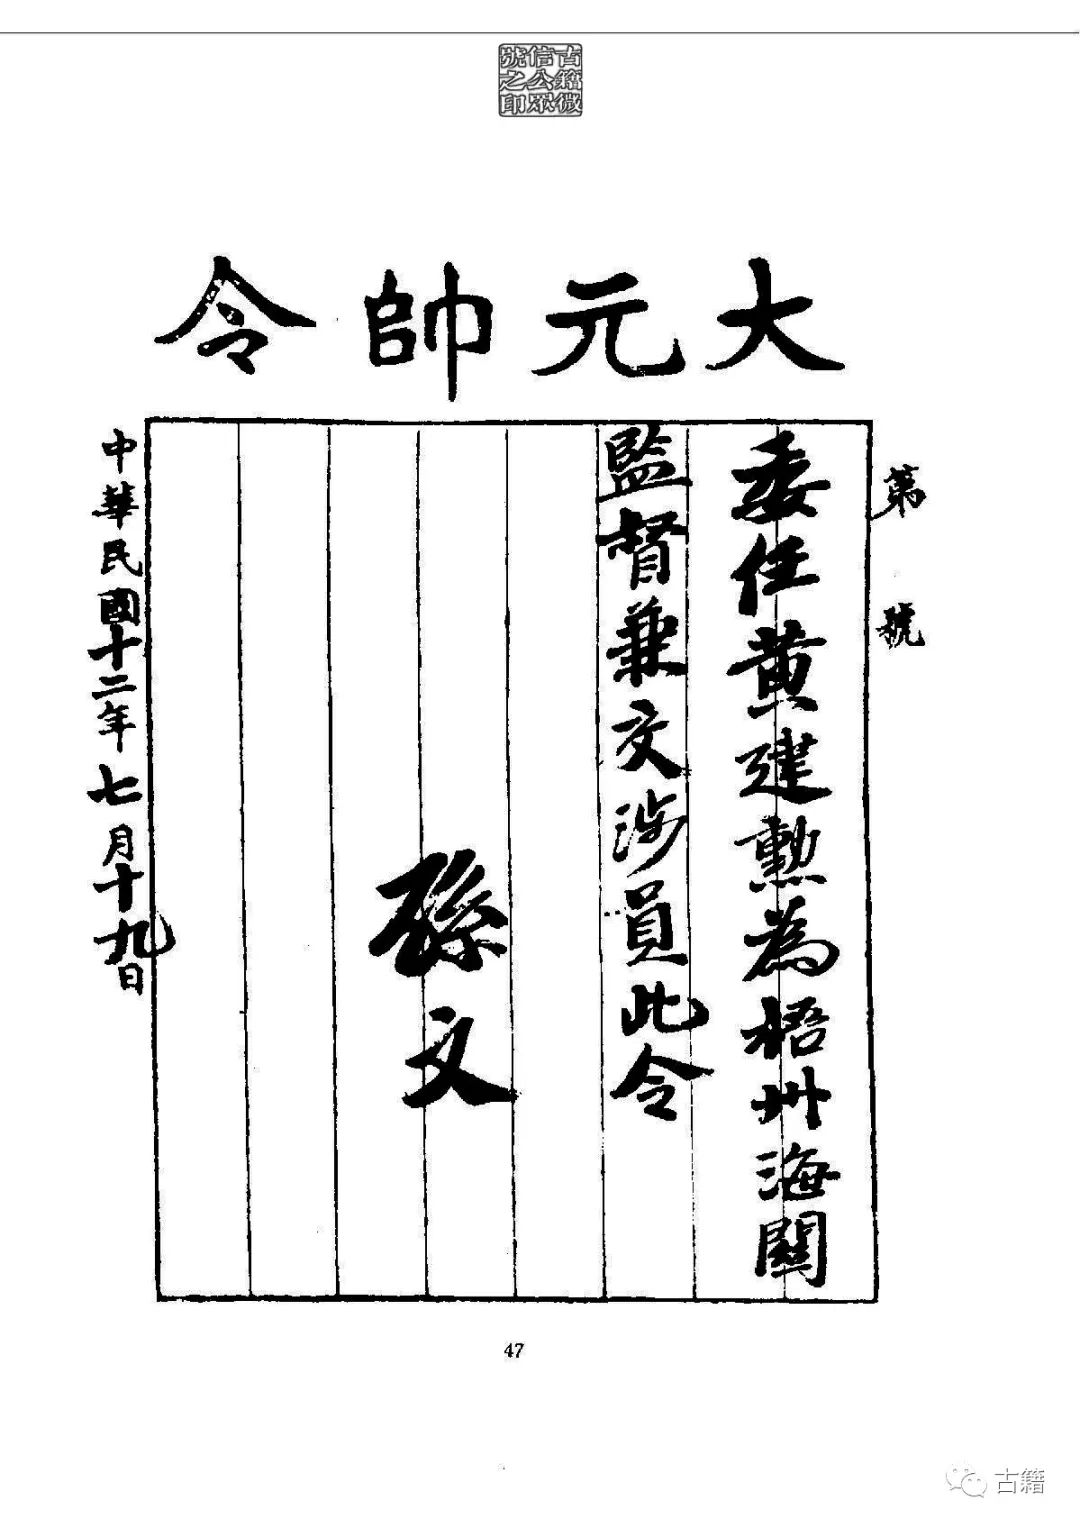 古籍微
信公眾
號之印
大元帥令
第 號
委任黄建勲為梧州海關
監督兼交涉員此令
孫文
中華民國十二年七月十九日
47
古籍